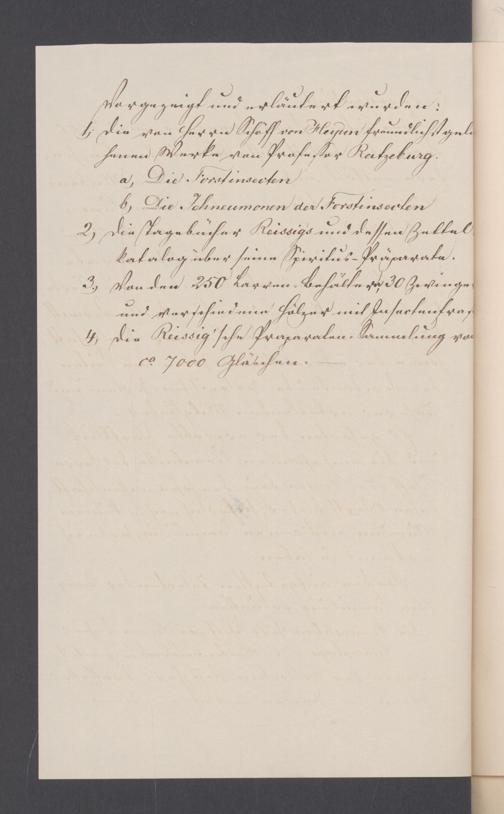 Vorgezeigt und erläutert wurden:
1, die von Herrn Schöff von Heyden freundlichst gelie
henen Werke von Professor Ratzeburg.
a, Die Forstinsecten
b, Die Ichneumonen der Forstinsecten
2, die Tagebücher Reissigs und dessen Zettel
katalog über seine Spiritus-Präparate.
3, Von den 250 Larven-Behältern 30 Zwinger
und verschiedene Hölzer mit Insectenfraß
4, die Reissig'sche Präparaten-Sammlung von
ca. 7000 Gläschen. —